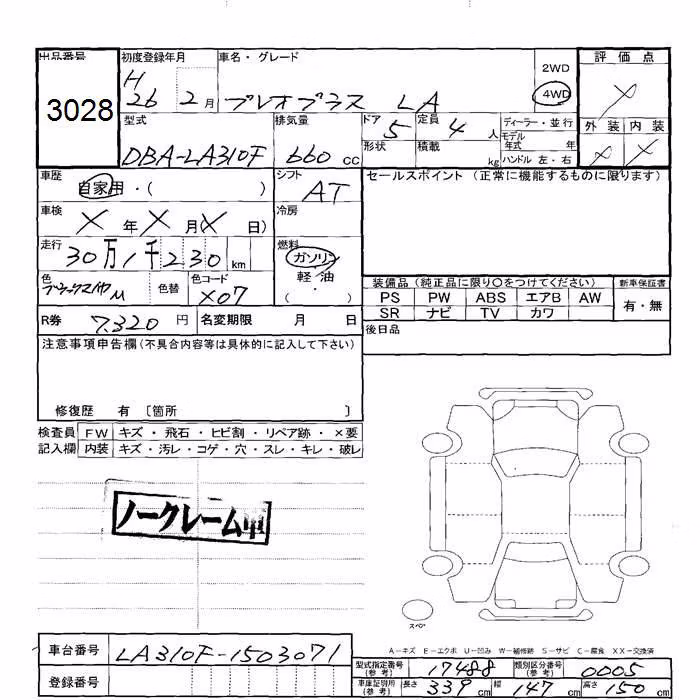 出品番号 初度登録年月 車名・グレード 2WD 評価点
3028 H 26 2月 プレオプラス LA 4WD X
型式 排気量 ドア 定員 ディーラー・並行 外装 内装
DBA-LA310F 660cc 5 4人 モデル年式 年 X X
形状 積載 kg ハンドル 左・右
車歴 自家用・( ) シフト AT セールスポイント (正常に機能するものに限ります)
車検 X年X月(X日) 冷房
走行 30万1千230km 燃料 ガソリン 軽油 ・( )
色 色替 色コード X07 装備品(純正品に限り○をつけてください) 新車保証書
PS PW ABS エアB AW 有・無
SR ナビ TV カワ
R券 7,320円 名変期限 月 日 後日品
注意事項申告欄(不具合内容等は具体的に記入して下さい)
修復歴 有 [箇所 ]
検査員 FW キズ・飛石・ヒビ割・リペア跡・×要
記入欄 内装 キズ・汚レ・コゲ・穴・スレ・キレ・破レ
ノークレーム車
スペア
A−キズ E−エクボ U−凹み W−補修跡 S−サビ C−腐食 XX−交換済
車台番号 LA310F-1503071 型式指定番号(参考) 17488 類別区分番号(参考) 0005
登録番号 車庫証明用(参考) 長さ 339cm 幅 147cm 高さ 150cm